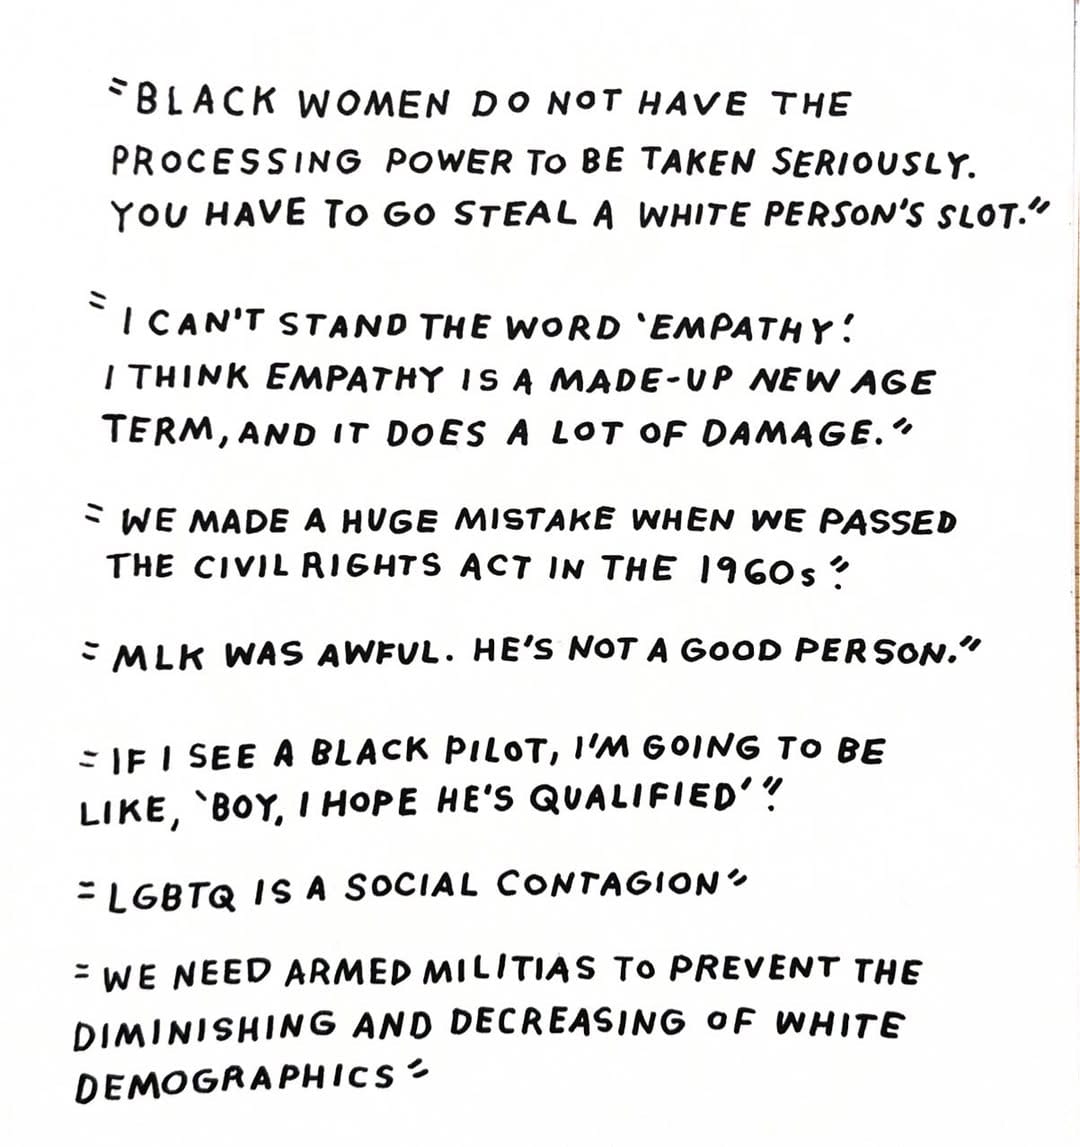 "BLACK WOMEN DO NOT HAVE THE
PROCESSING POWER TO BE TAKEN SERIOUSLY.
YOU HAVE TO GO STEAL A WHITE PERSON'S SLOT."
"I CAN'T STAND THE WORD 'EMPATHY.'
I THINK EMPATHY IS A MADE-UP NEW AGE
TERM, AND IT DOES A LOT OF DAMAGE."
"WE MADE A HUGE MISTAKE WHEN WE PASSED
THE CIVIL RIGHTS ACT IN THE 1960s."
"MLK WAS AWFUL. HE'S NOT A GOOD PERSON."
"IF I SEE A BLACK PILOT, I'M GOING TO BE
LIKE, 'BOY, I HOPE HE'S QUALIFIED'."
"LGBTQ IS A SOCIAL CONTAGION"
"WE NEED ARMED MILITIAS TO PREVENT THE
DIMINISHING AND DECREASING OF WHITE
DEMOGRAPHICS"